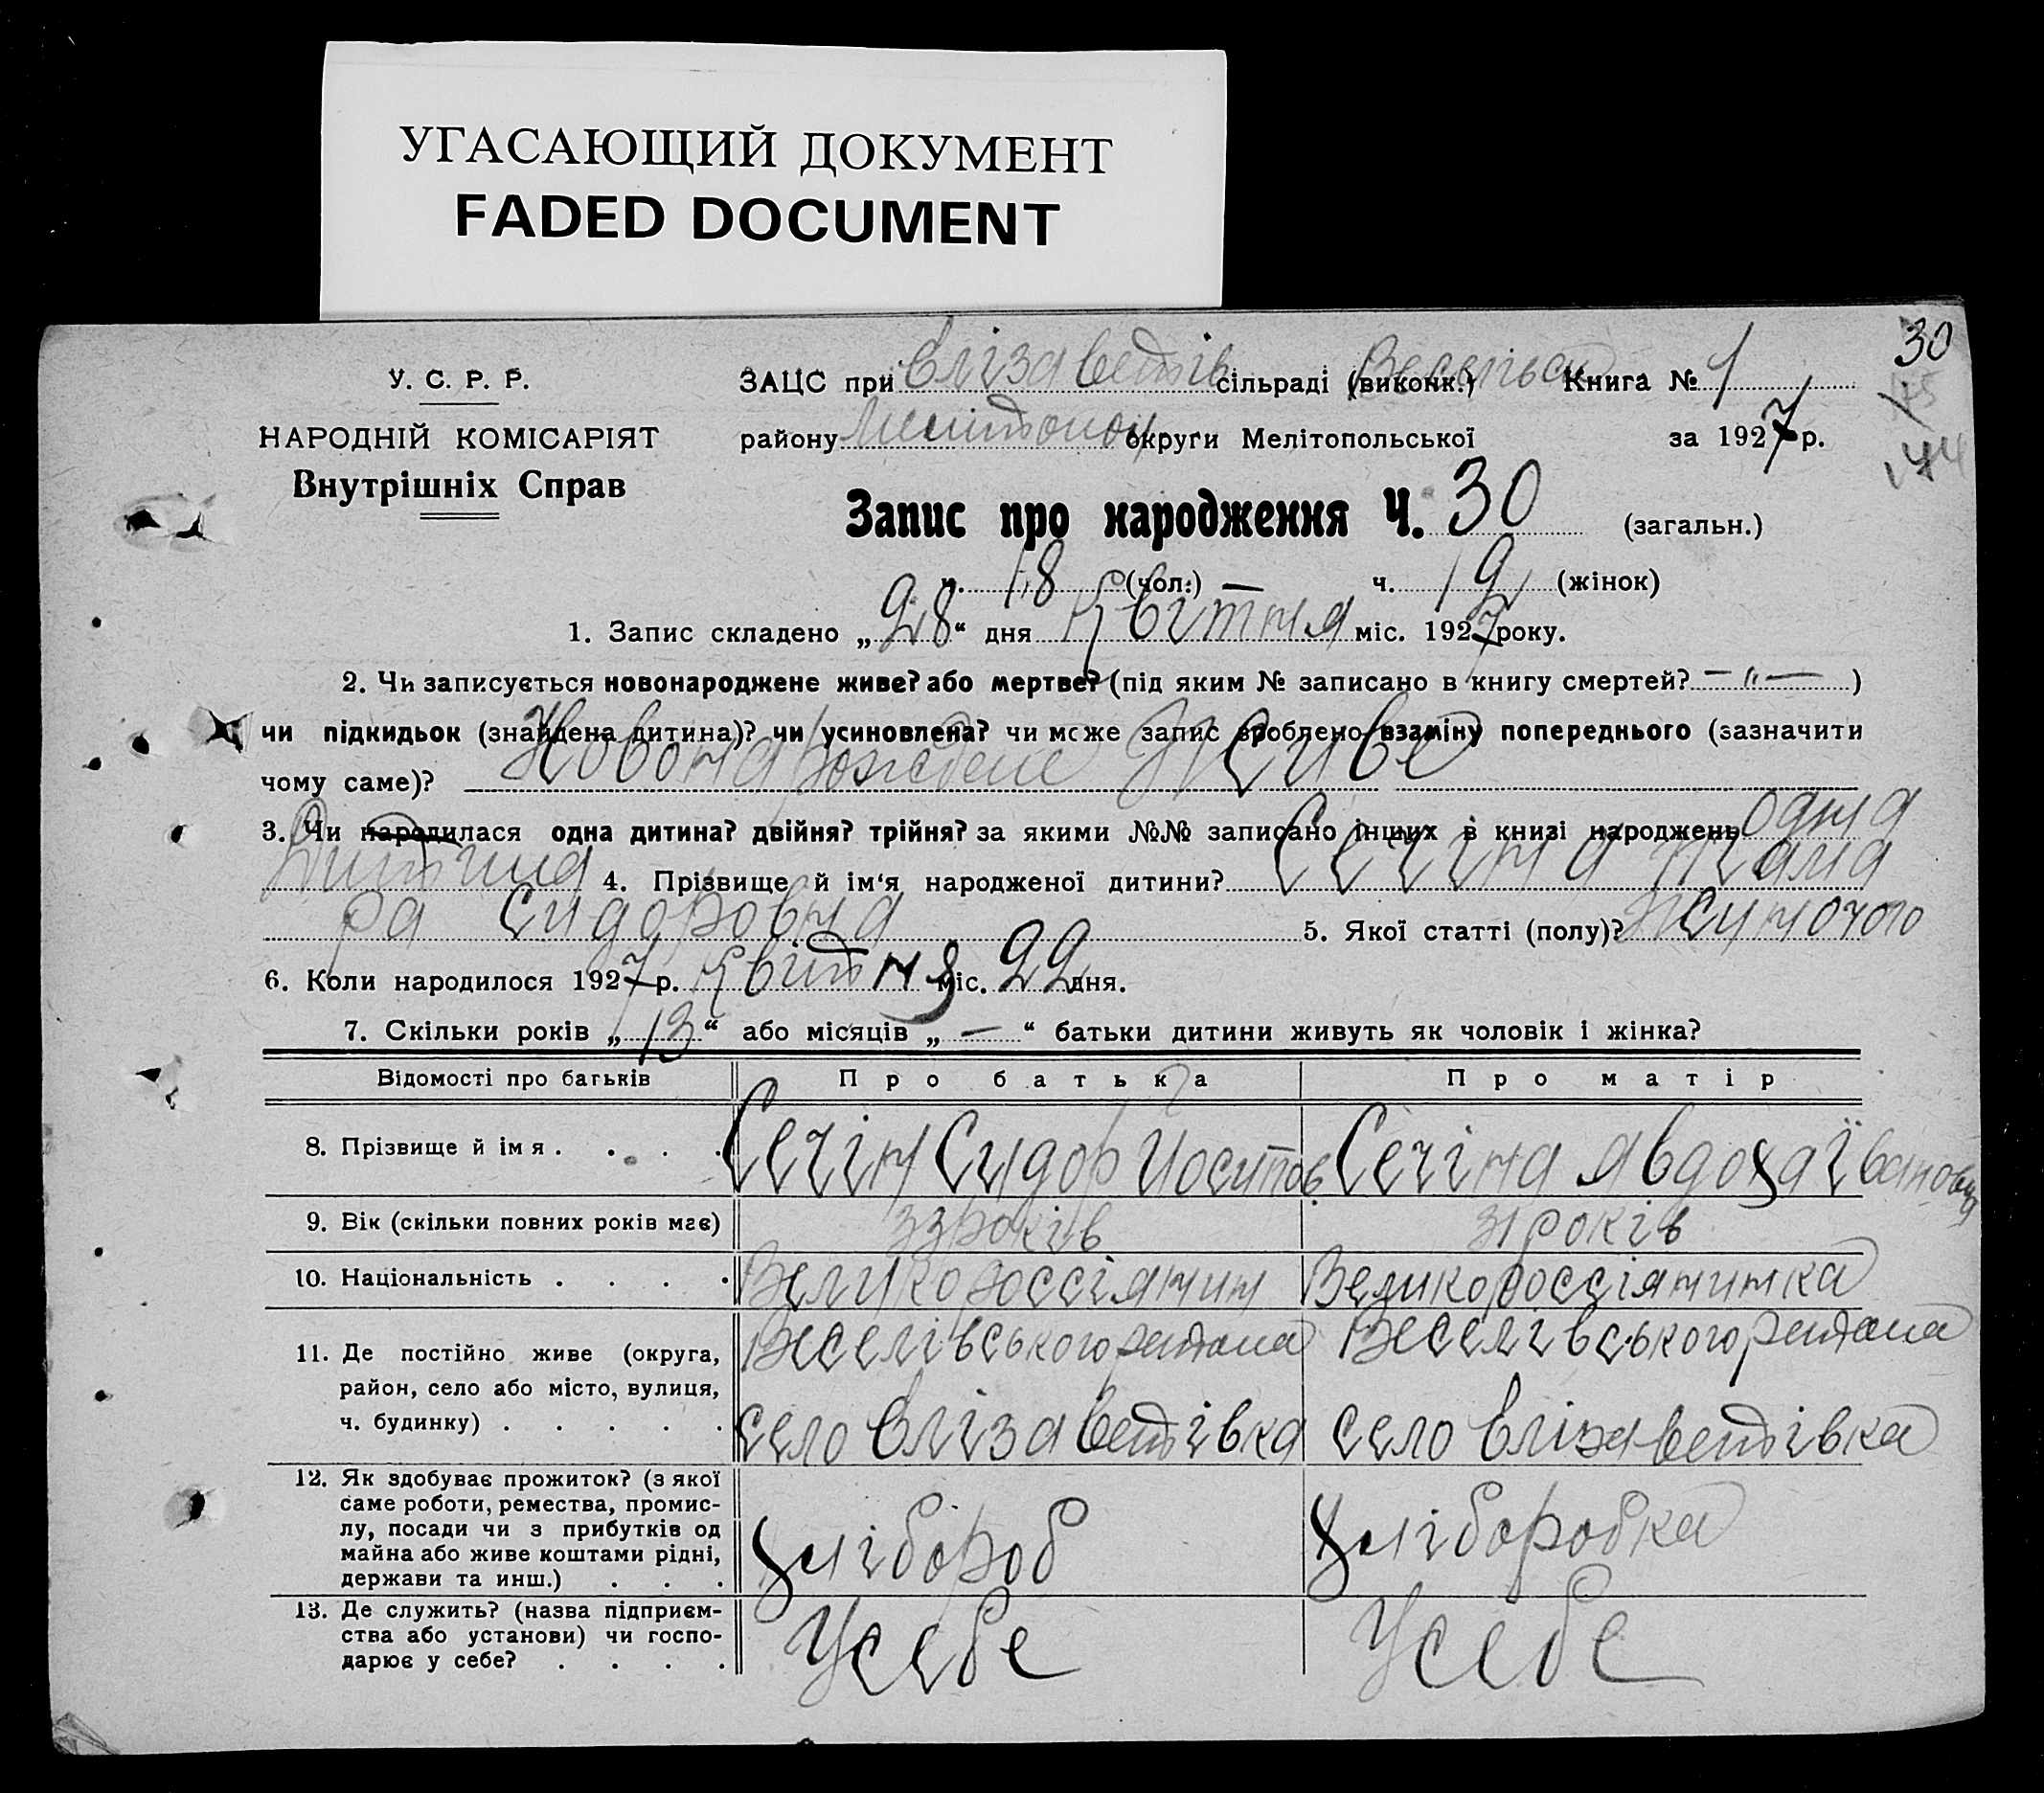 УГАСАЮЩИЙ ДОКУМЕНТ
FADED DOCUMENT
30
У. С. Р. Р.
НАРОДНІЙ КОМІСАРІЯТ
Внутрішніх Справ
ЗАЦС при Єлізаветів сільраді (виконк.) Книга № 1
району округи Мелітопольської за 1927 р.
144
Запис про народження Ч. 30 (загальн.)
ч. 18 (чол.) — ч. 12 (жінок)
1. Запис складено „28“ дня Квітня міс. 1927 року.
2. Чи записується новонароджене живе? або мертве? (під яким № записано в книгу смертей? — „ — )
чи підкидьок (знайдена дитина)? чи усиновлена? чи може запис зроблено взаміну попереднього (зазначити
чому саме)? Новонарождене Живе
3. Чи народилася одна дитина? двійня? трійня? за якими №№ записано інших в книзі народжень одна
Дитина 4. Прізвище й ім‘я народженої дитини? Сечіна тама
ра Сидоровна 5. Якої статті (полу)? жиночого
6. Коли народилося 1927 р. Квітня міс. 22 дня.
7. Скільки років „13“ або місяців „—“ батьки дитини живуть як чоловік і жінка?
Відомості про батьків Про батька Про матір
8. Прізвище й ім я . . . . Сечін Сидор Иосипов Сечіна Явдоха Івановна
9. Вік (скільки повних років має) 33 років 31 років
10. Національність . . . . Великороссіянин Великороссіянинка
11. Де постійно живе (округа, Веселівського району Веселівського району
район, село або місто, вулиця,
ч. будинку) . . . . . село Єлізаветівка село Єлізаветівка
12. Як здобуває прожиток? (з якої
саме роботи, ремества, промис-
лу, посади чи з прибутків од
майна або живе коштами рідні,
держави та инш.) . . . Хліборoб Хліборобка
13. Де служить? (назва підприєм-
ства або установи) чи госпо-
дарює у себе? . . . . У себе У себе